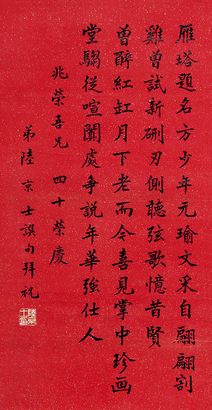 雁塔題名方少年元瑜文采自翩翩割
雞曾試新硎刃側聽弦歌憶昔賢
曾醉紅缸月下老而今喜見掌中珍画
堂騶從喧闐處爭說年華強仕人
兆榮吾兄 四十榮慶
弟陸京士譔句拜祝